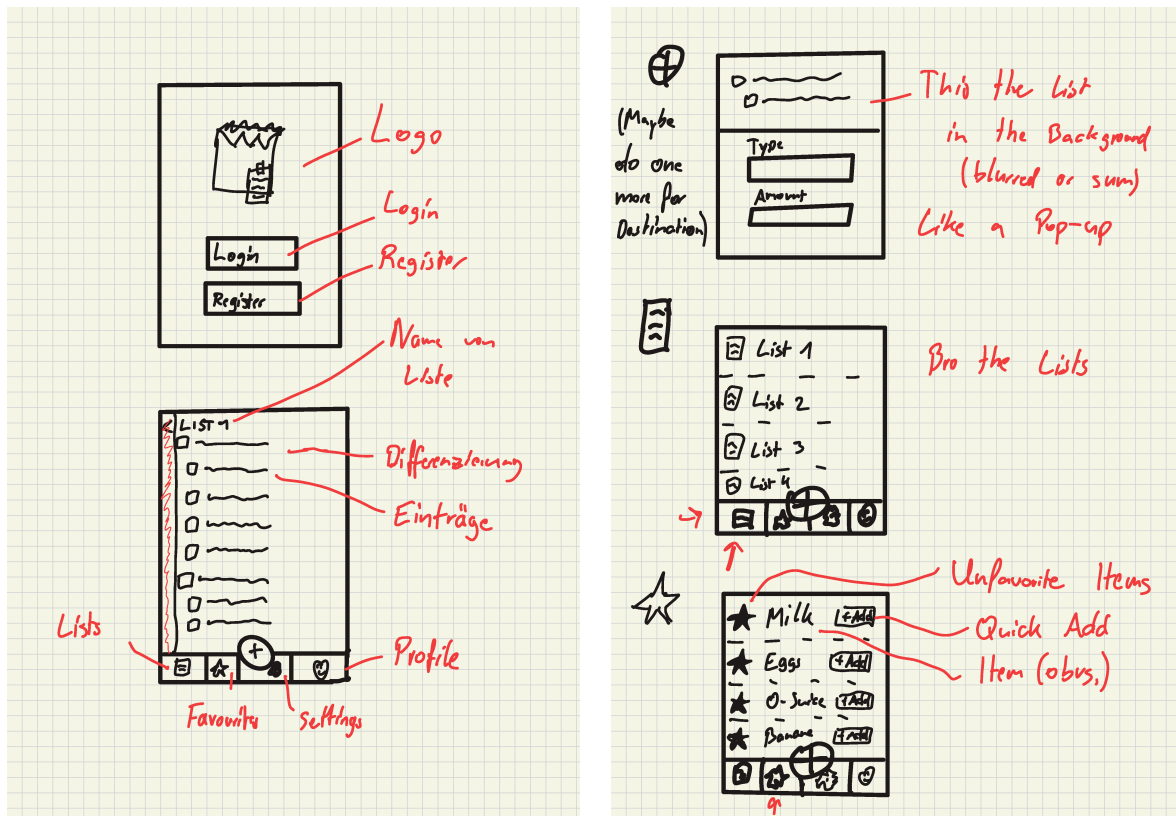 Logo
Login
Login
Register
Register
Name von
Liste
LIST 1
Einträge
Lists
Profile
Favourites
Settings
(Maybe
do one
more for
Destination)
Type
Amount
This the List
in the Background
(blurred or sum)
Like a Pop-up
List 1
List 2
List 3
List 4
Bro the Lists
Unfavorite Items
Milk
+Add
Quick Add
Eggs
+Add
Item (obvs.)
+Add
Banane
+Add